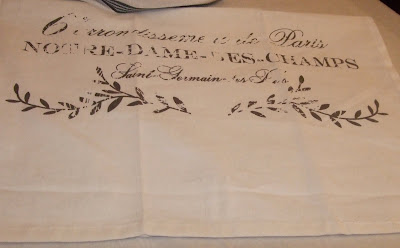 6e Arrondissement de Paris
NOTRE-DAME-DES-CHAMPS
Saint-Germain-des-Prés